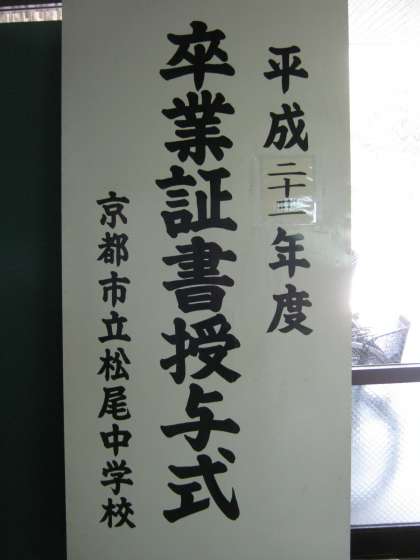 平成二十一年度
卒業証書授与式
京都市立松尾中学校